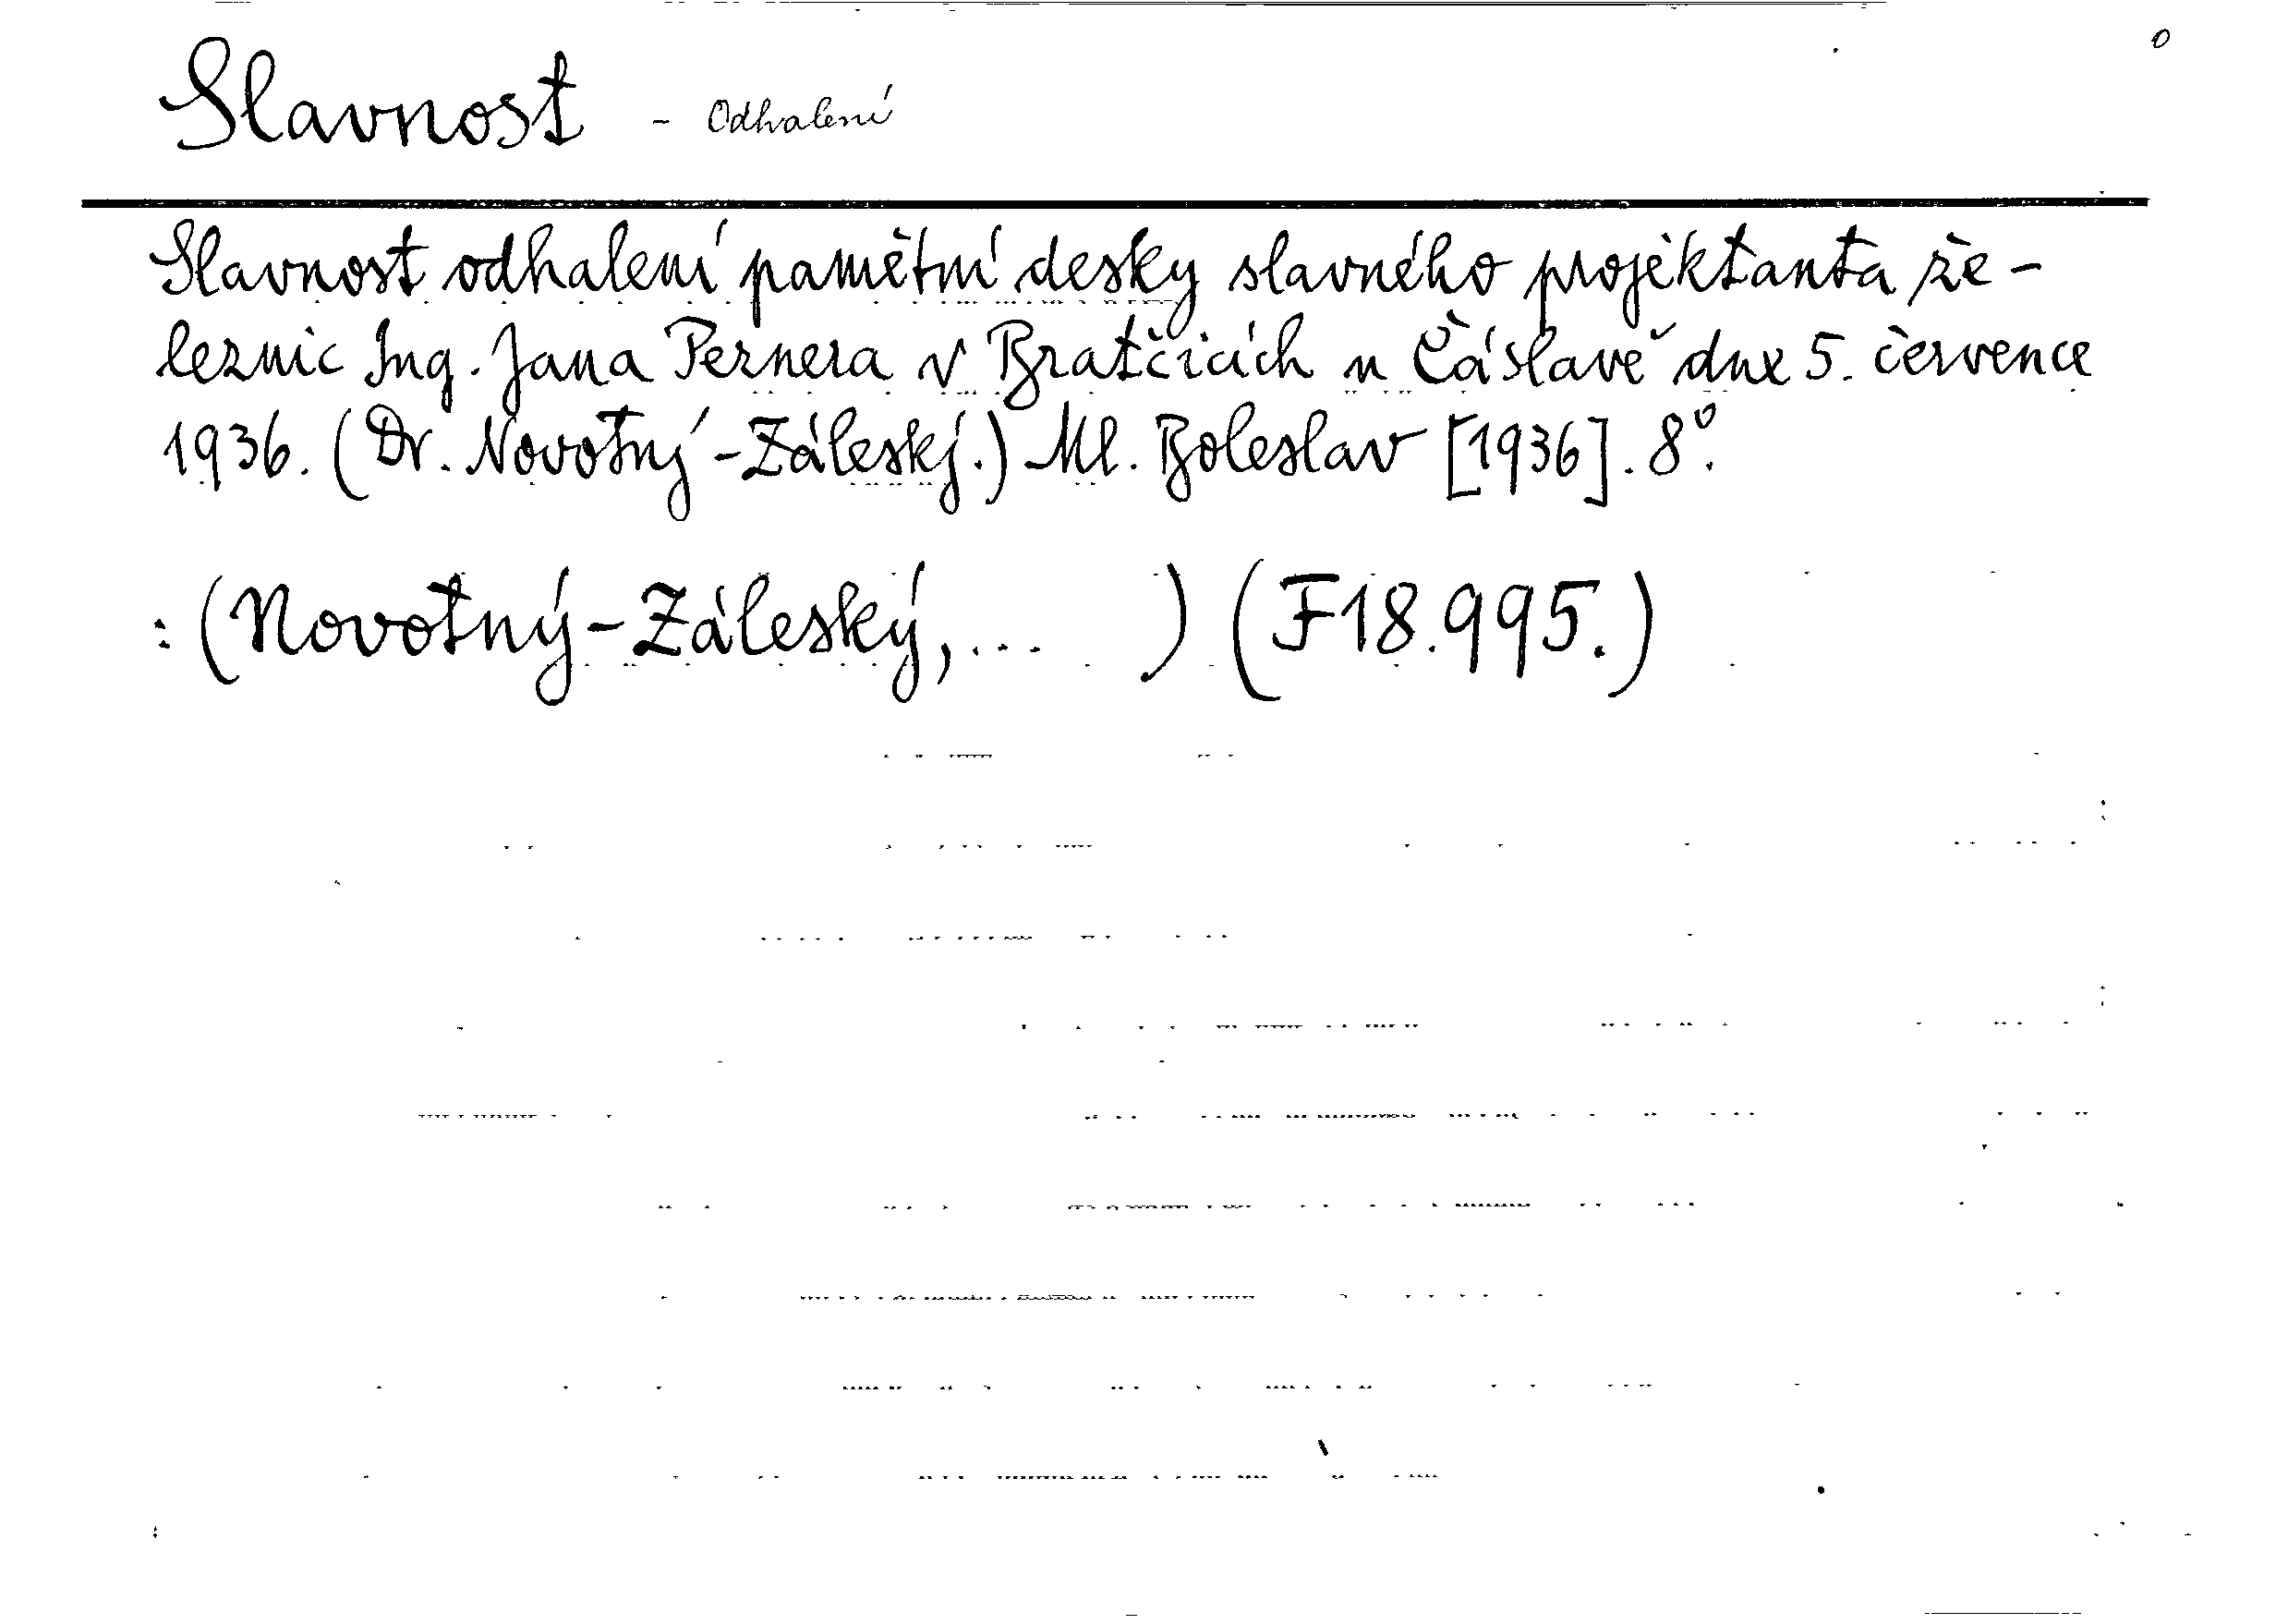 0
Slavnost - Odhalení
Slavnost odhalení pamětní desky slavného projektanta že-
leznic Ing. Jana Pernera v Bratčicích u Čáslavě dne 5. července
1936. (Dr. Novotný-Záleský.) Ml. Boleslav [1936]. 8°.
: (Novotný-Záleský, ... ) (F18.995.)